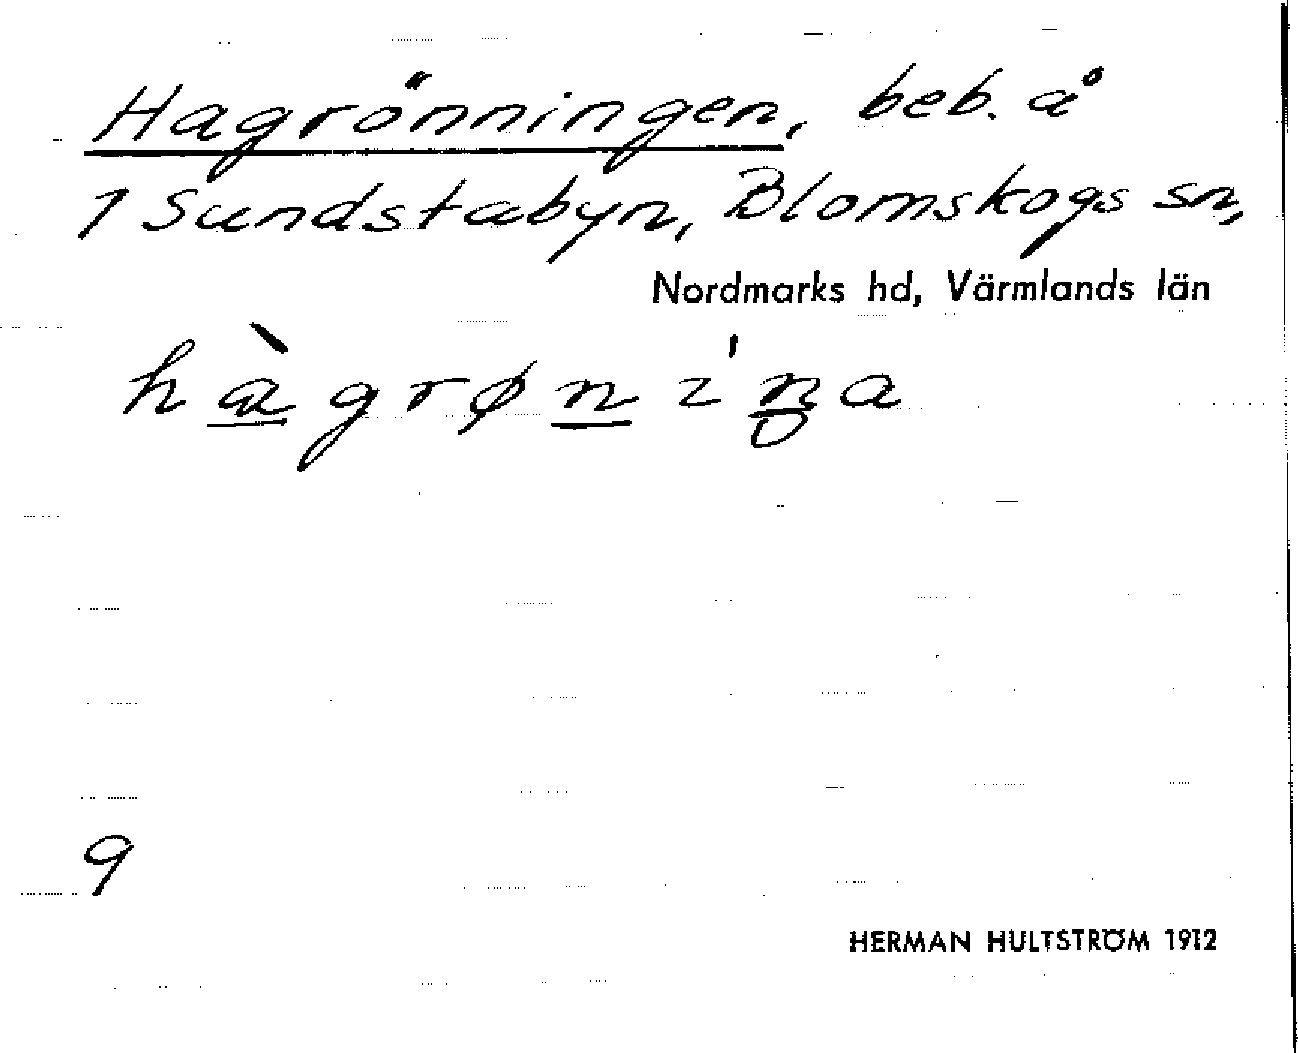 Hagrönningen, beb. å
1 Sundstabyn, Blomskogs sn,
Nordmarks hd, Värmlands län
hàgrøniŋa
9
HERMAN HULTSTRÖM 1912